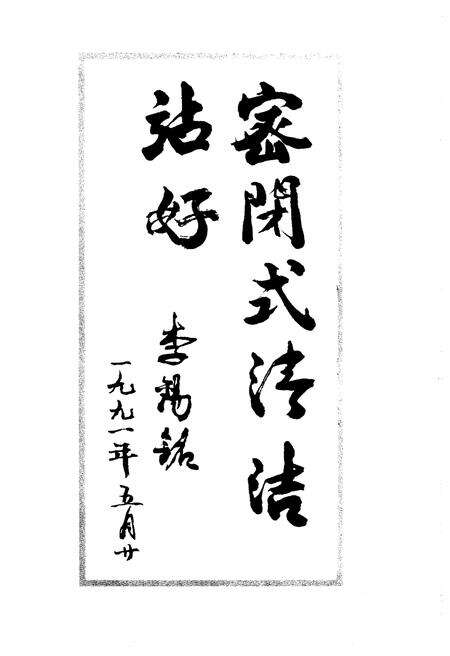 密閉式清洁
站好
李锡铭
一九九一年五月廿